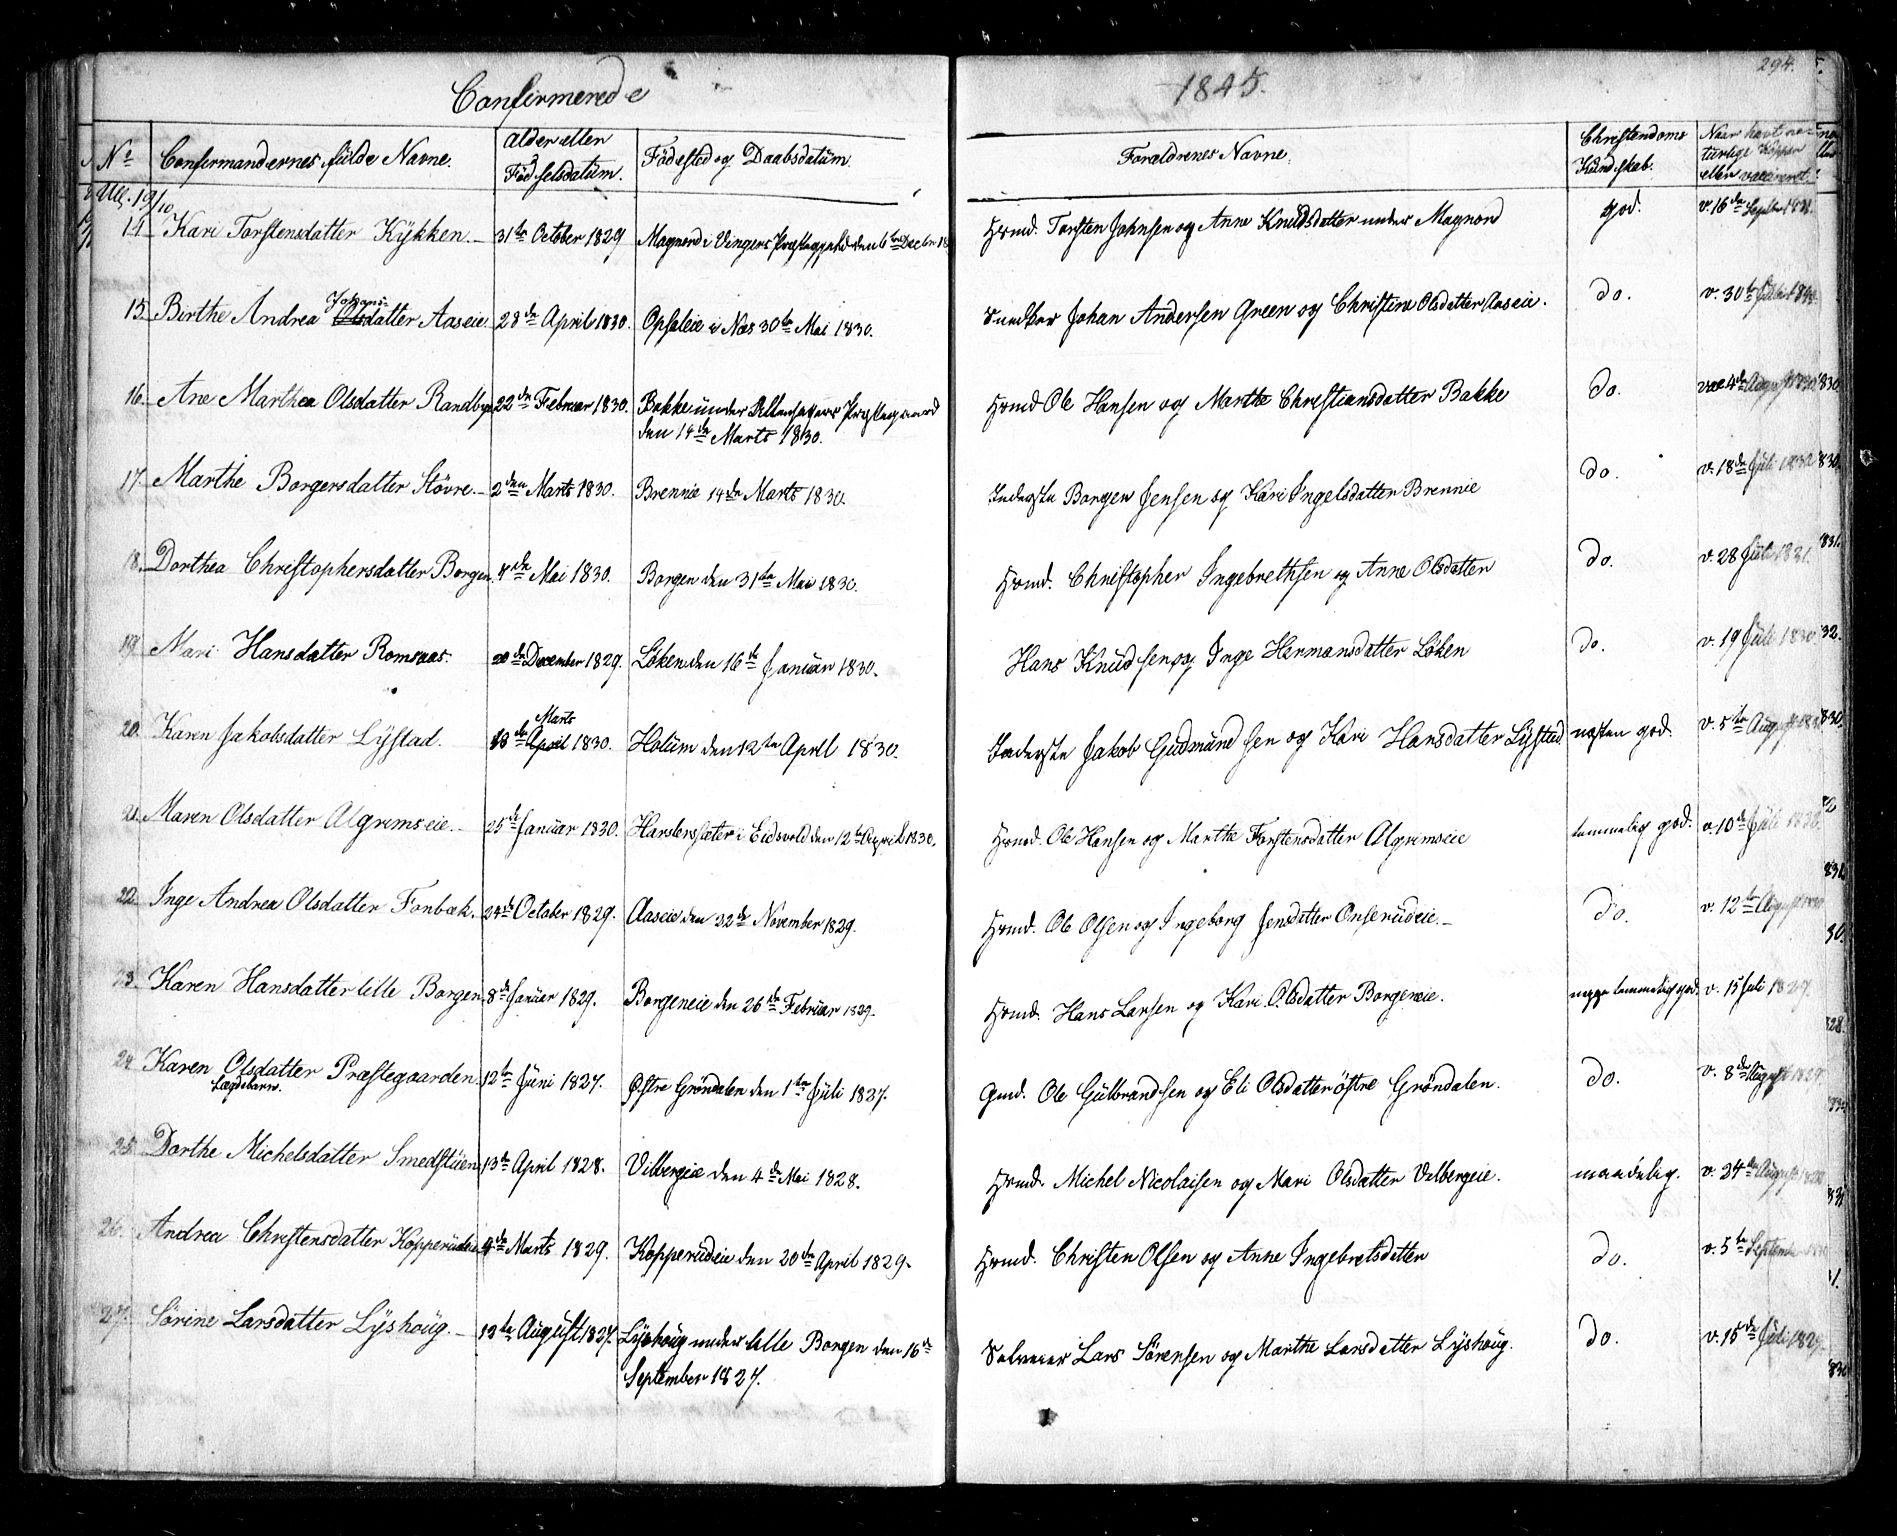 Confirmerede
1845.
294.
No Confirmandernes fulde Navne. Alder eller Fødselsdatum. Födested og Daabsdatum. Forældrenes Navne. Christendoms Kundskab. Naar havt naturlige Kopper eller vaccineret.
Ull. 19/10
14 Kari Torstensdatter Kykken. 31te October 1829 Magnord i Vingers Præstegjeld den 6te Decbr 18 Hrmd. Torsten Johnsen og Anne Knudsdatter under Magnord god. v. 16de Septbr 1831.
15. Birthe Andrea Johans- Olsdatter Aaseie 28de April 1830. Opsaleie i Næs 30te Mai 1830. Snedker Johan Andersen Green og Christine Olsdatter Aaseie. do. v. 30te Juli
16. Ane Marthea Olsdatter Randbye 22de Februar 1830. Bakke under Ullensakers Præstegaard
den 14de Marts 1830. Hrmd Ole Hansen og Marthe Christiansdatter Bakke do. vac 4de August 1830
17. Marthe Borgersdatter Stövre. 2den Marts 1830. Brennie 14de Marts 1830. Inderste Borger Jensen og Kari Ingelsdatter Brennie do. v. 18de Juli 1832
18. Dorthea Christophersdatter Borgen 4de Mai 1830. Borgen den 31te Mai 1830. Hrmd. Christopher Ingebrethsen og Anne Olsdatter do. v. 28 Juli 1831.
19. Mari Hansdatter Romsaas. 20de December 1829. Löken den 16de Januar 1830. Hans Knudsen og Inge Hermansdatter Löken do. v. 19 Juli 1830
20. Karen Jakobsdatter Lystad. 18de April Marts 1830. Holum den 12te April 1830. Inderste Jakob Gudmundsen og Kari Hansdatter Lystad næsten god. v. 5te August
21. Maren Olsdatter Algrimseie. 25de Januar 1830. i Eidsvold den 12te April 1830. Hrmd. Ole Hansen og Marthe Torstensdatter Algrimseie temmelig god. v. 10de Juli
22. Inge Andrea Olsdatter Fonbæk. 24de October 1829. Aaseie den 22de November 1829. Hrmd. Ole Olsen og Ingeborg Jensdatter Onsrudeie. do. v. 12te August
23. Karen Hansdatter lille Borgen 8de Januar 1829. Borgeneie den 26de Februar 1829. Hrmd. Hans Larsen og Kari Olsdatter Borgeneie. neppe temmelig god. v. 15 Juli 1829.
24 Karen Olsdatter Præstegaarden 12te Juni 1827. Østre Gröndalen den 1te Juli 1827. Gmd. Ole Gulbrandsen og Eli Olsdatter östre Gröndalen. do. v. 8de August 1829
Lægdebarn.
25. Dorthe Michelsdatter Smedstuen 13de April 1828. Vilbergeie den 4de Mai 1828. Hrmd. Michel Nicolaisen og Mari Olsdatter Velbergeie. maadelig. v. 24de August
26. Andrea Christensdatter Kopperudeie 9de Marts 1829. Kopperudeie den 20de April 1829. Hrmd. Christen Olsen og Anne Ingebretsdatter do. v. 5te September
27. Sörine Larsdatter Lyshoug. 13te August 1827. Lyshoug under lille Borgen den 16de
September 1827. Selveier Lars Sörensen og Marthe Larsdatter Lyshoug. do. v. 15de Juli 1829.